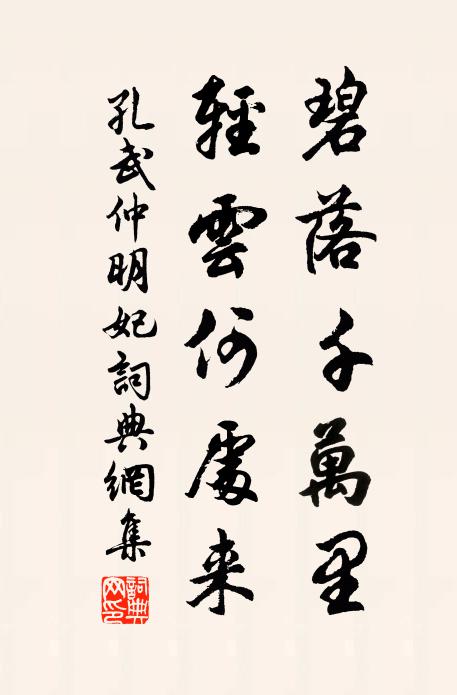 碧落千萬里
輕雲何處来
孔武仲明妃詞典網集
詞典網印